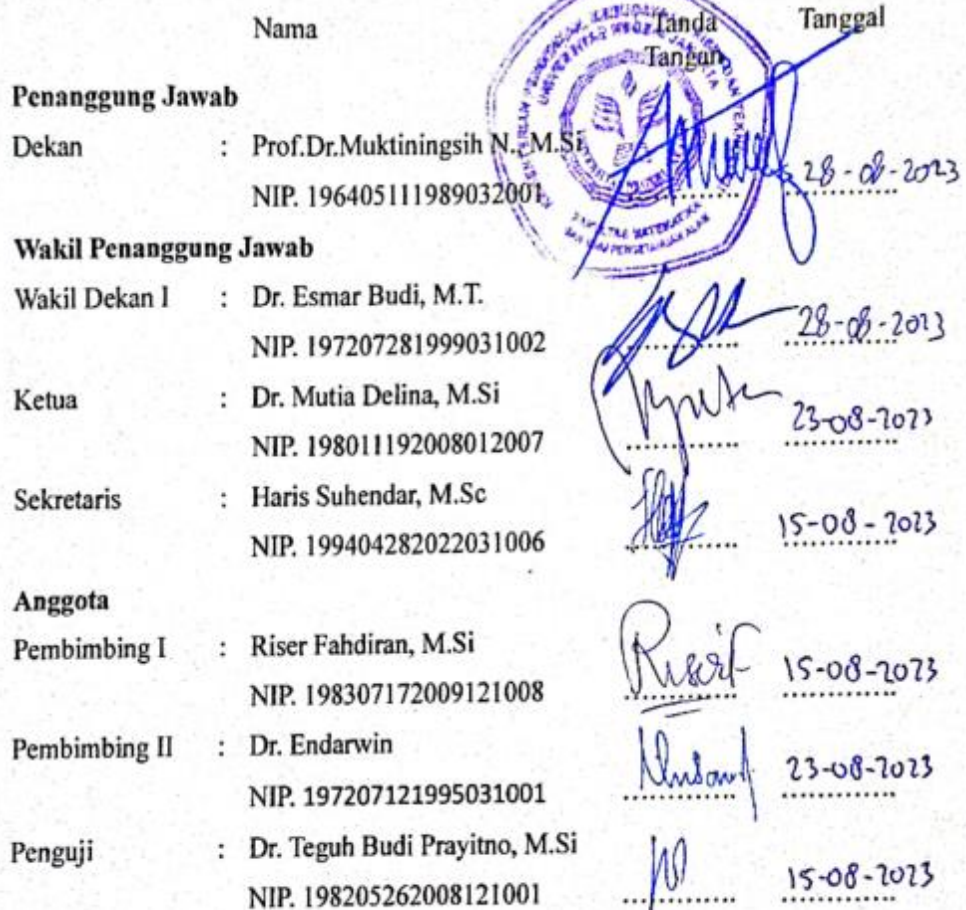 Nama Tanda Tanggal
Tangan
Penanggung Jawab
Dekan : Prof.Dr.Muktiningsih N., M.Si
NIP. 196405111989032001 28-08-2023
Wakil Penanggung Jawab
Wakil Dekan I : Dr. Esmar Budi, M.T. 28-08-2023
NIP. 197207281999031002
Ketua : Dr. Mutia Delina, M.Si 23-08-2023
NIP. 198011192008012007
Sekretaris : Haris Suhendar, M.Sc
NIP. 199404282022031006 15-08-2023
Anggota
Pembimbing I : Riser Fahdiran, M.Si
NIP. 198307172009121008 15-08-2023
Pembimbing II : Dr. Endarwin 23-08-2023
NIP. 197207121995031001
Penguji : Dr. Teguh Budi Prayitno, M.Si
NIP. 198205262008121001 15-08-2023